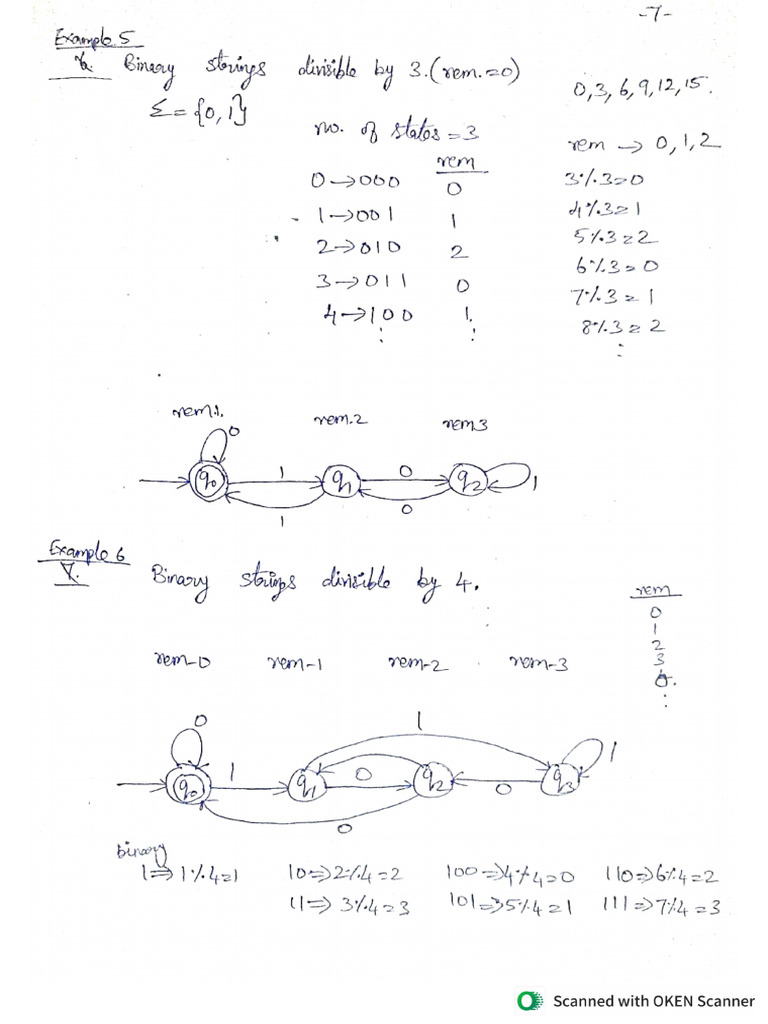 -7-
Example 5
Binary strings divisible by 3. (rem.=0)
0,3,6,9,12,15.
Σ={0,1}
no. of states=3
rem → 0,1,2
rem
0→000 0
3%3=0
1→001 1
4%3=1
2→010 2
5%3=2
3→011 0
6%3=0
4→100 1.
7%3=1
8%3=2
rem1. rem.2 rem3
0
q0 1 q1 0 q2 1
1 0
Example 6
Binary strings divisible by 4.
rem
0
1
2
3
0.
rem-0 rem-1 rem-2 rem-3
0 1 1
q0 1 q1 0 q2 0 q3
0
binary
1⇒1%4=1 10⇒2%4=2 100⇒4%4=0 110⇒6%4=2
11⇒3%4=3 101⇒5%4=1 111⇒7%4=3
Scanned with OKEN Scanner